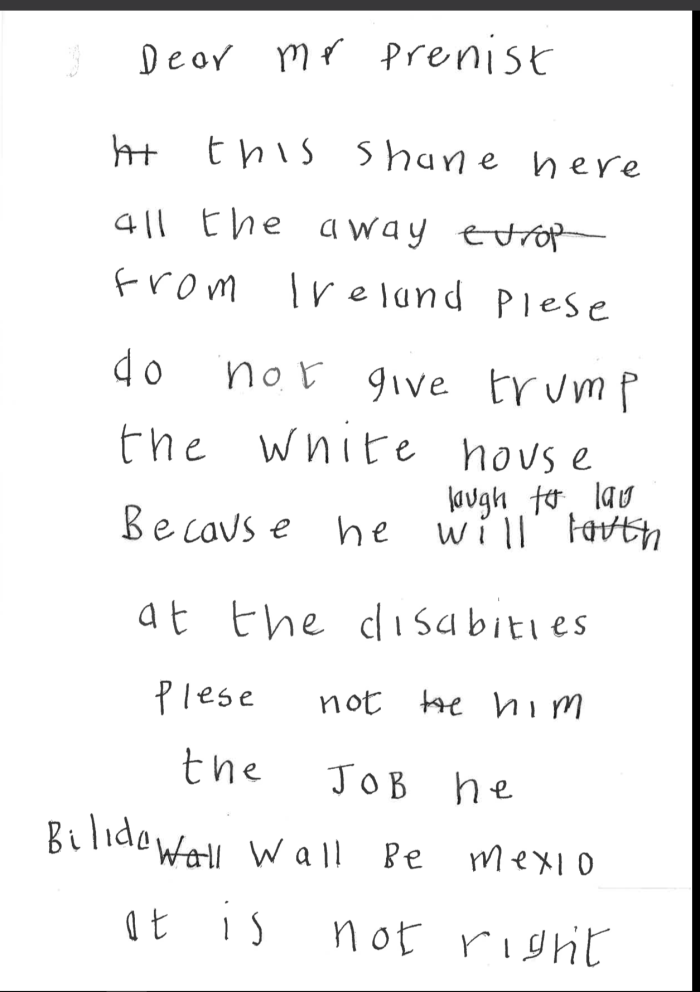 Dear mr prenist
ht this shane here
all the away europ
from Ireland plese
do not give trump
the white house
laugh to lau
Because he will lauth
at the disabities
Plese not he him
the JOB he
Bilida Wall Wall Be mexio
it is not right